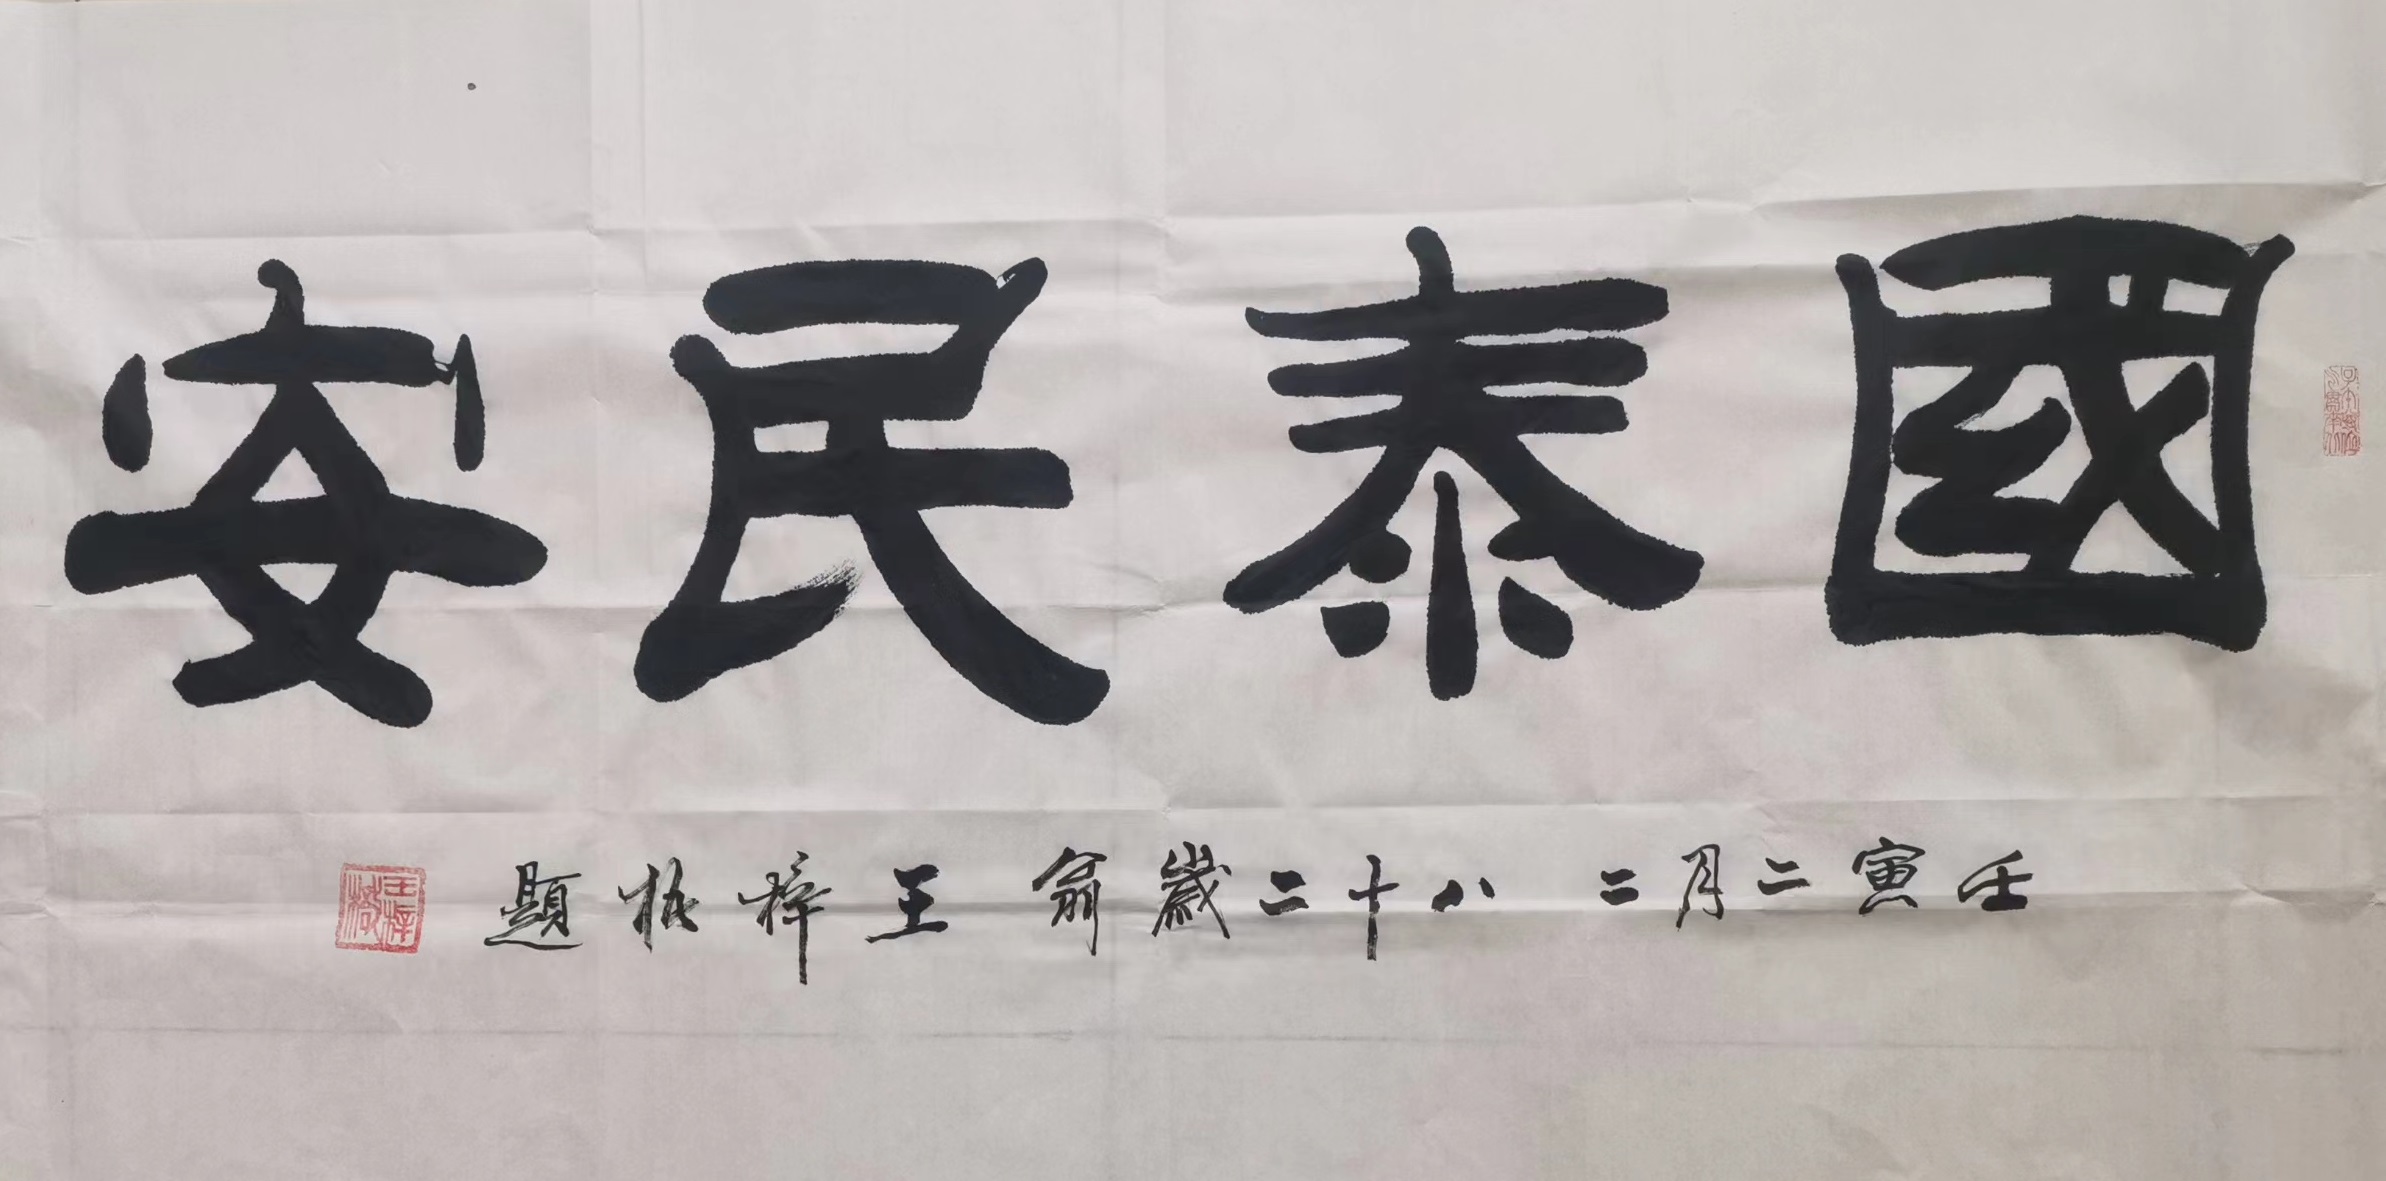 國泰民安
壬寅二月二 八十二歲翁 王梓題